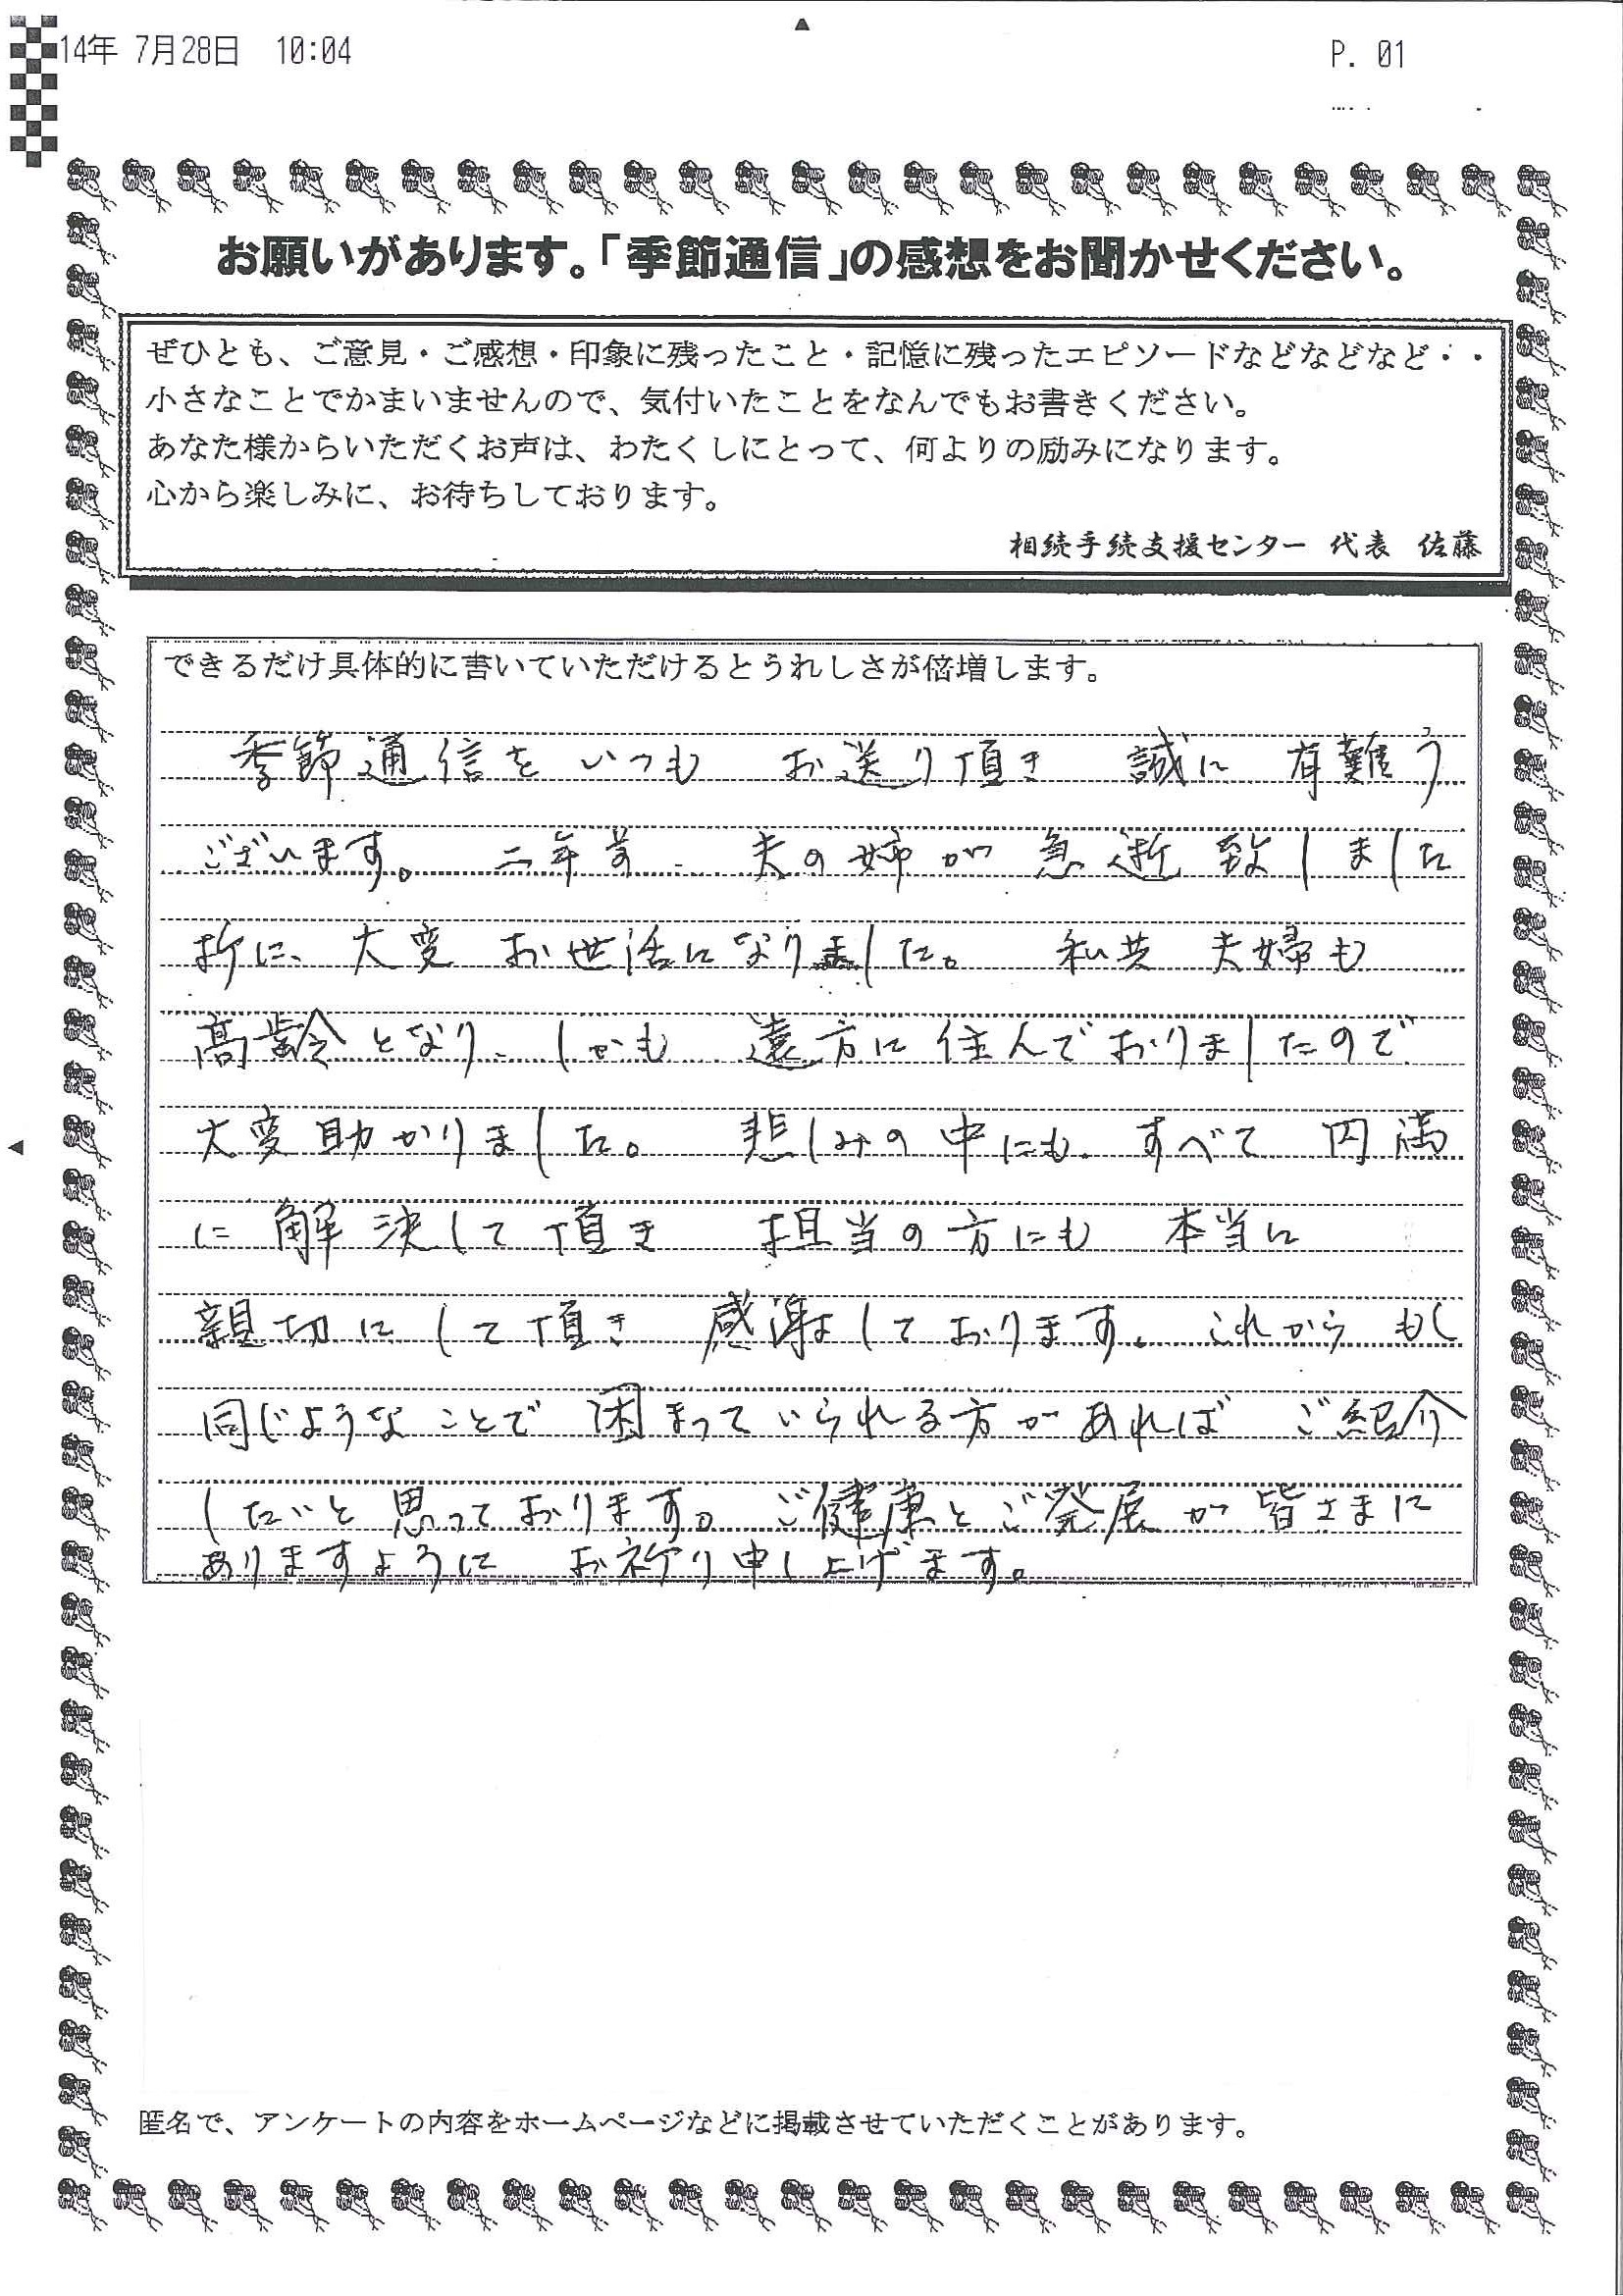 14年 7月28日 10:04
P. 01
お願いがあります。「季節通信」の感想をお聞かせください。
ぜひとも、ご意見・ご感想・印象に残ったこと・記憶に残ったエピソードなどなどなど・・
小さなことでかまいませんので、気付いたことをなんでもお書きください。
あなた様からいただくお声は、わたくしにとって、何よりの励みになります。
心から楽しみに、お待ちしております。
相続手続支援センター 代表 佐藤
できるだけ具体的に書いていただけるとうれしさが倍増します。
季節通信をいつも お送り頂き 誠に 有難う
ございます。 二年前、夫の姉が 急逝致しました
折に、大変 お世話になりました。 私共 夫婦も
高齢となり、しかも 遠方に住んでおりましたので
大変助かりました。 悲しみの中にも、すべて 円満
に解決して頂き 担当の方にも 本当に
親切にして頂き 感謝しております。これから もし
同じようなことで 困まっていられる方があれば ご紹介
したいと思っております。ご健康とご発展が皆さまに
ありますように お祈り申し上げます。
匿名で、アンケートの内容をホームページなどに掲載させていただくことがあります。